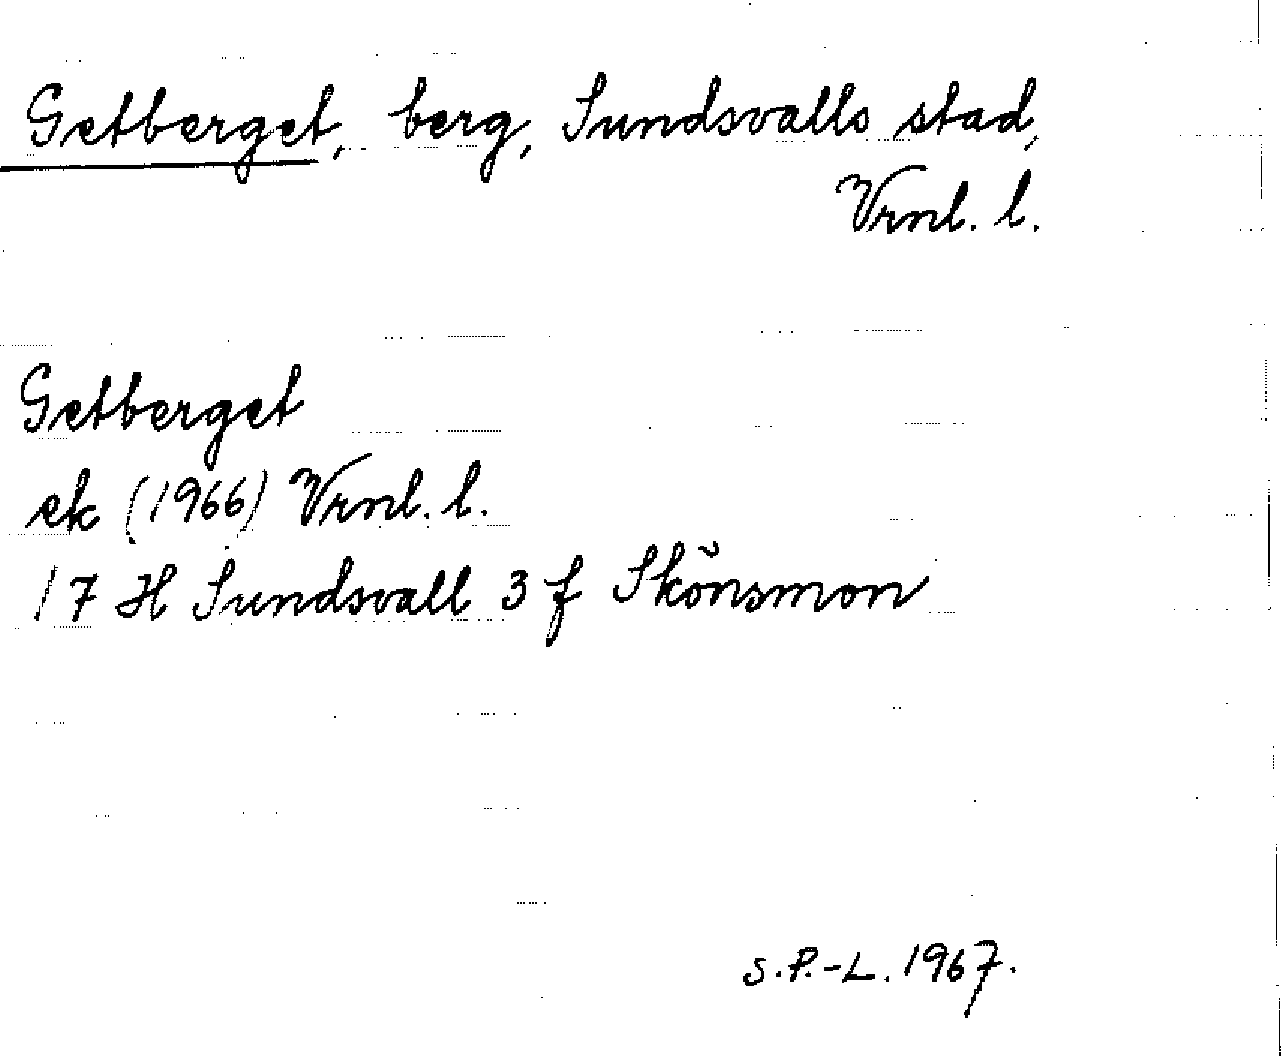 Getberget, berg, Sundsvalls stad,
Vrnl. l.
Getberget
ek (1966) Vrnl. l.
17 H Sundsvall 3 f Skönsmon
S.P.-L. 1967.